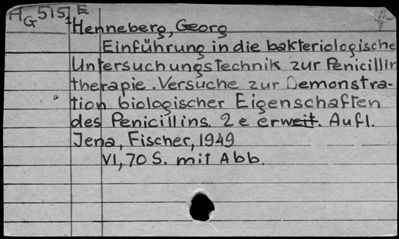 HG 5151 E
Henneberg, Georg
Einführung in die bakteriologische
Untersuchungstechnik zur Penicillin
therapie. Versuche zur Demonstra-
tion biologischer Eigenschaften
des Penicillins. 2e erweit. Aufl.
Jena, Fischer, 1949
VI, 70 S. mit Abb.